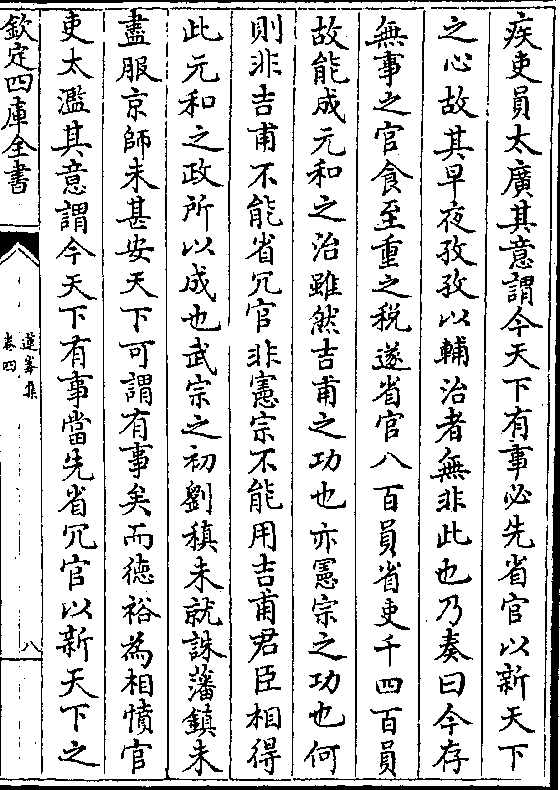 疾吏員太廣其意謂今天下有事必先省官以新天下
之心故其早夜孜孜以輔治者無非此也乃奏曰今存
無事之官食至重之稅遂省官八百員省吏千四百員
故能成元和之治雖然吉甫之功也亦憲宗之功也何
則非吉甫不能省冗官非憲宗不能用吉甫君臣相得
此元和之政所以成也武宗之初劉稹未就誅藩鎮未
盡服京師未甚安天下可謂有事矣而德裕為相憤官
吏太濫其意謂今天下有事當先省冗官以新天下之
欽定四庫全書
蓮峯集
卷四
八